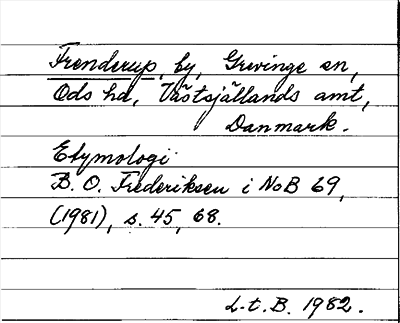 Frenderup, by, Grevinge sn,
Ods hd, Västsjällands amt,
Danmark.
Etymologi:
B. O. Frederiksen i NoB 69,
(1981), s. 45, 68.
L-t. B. 1982.